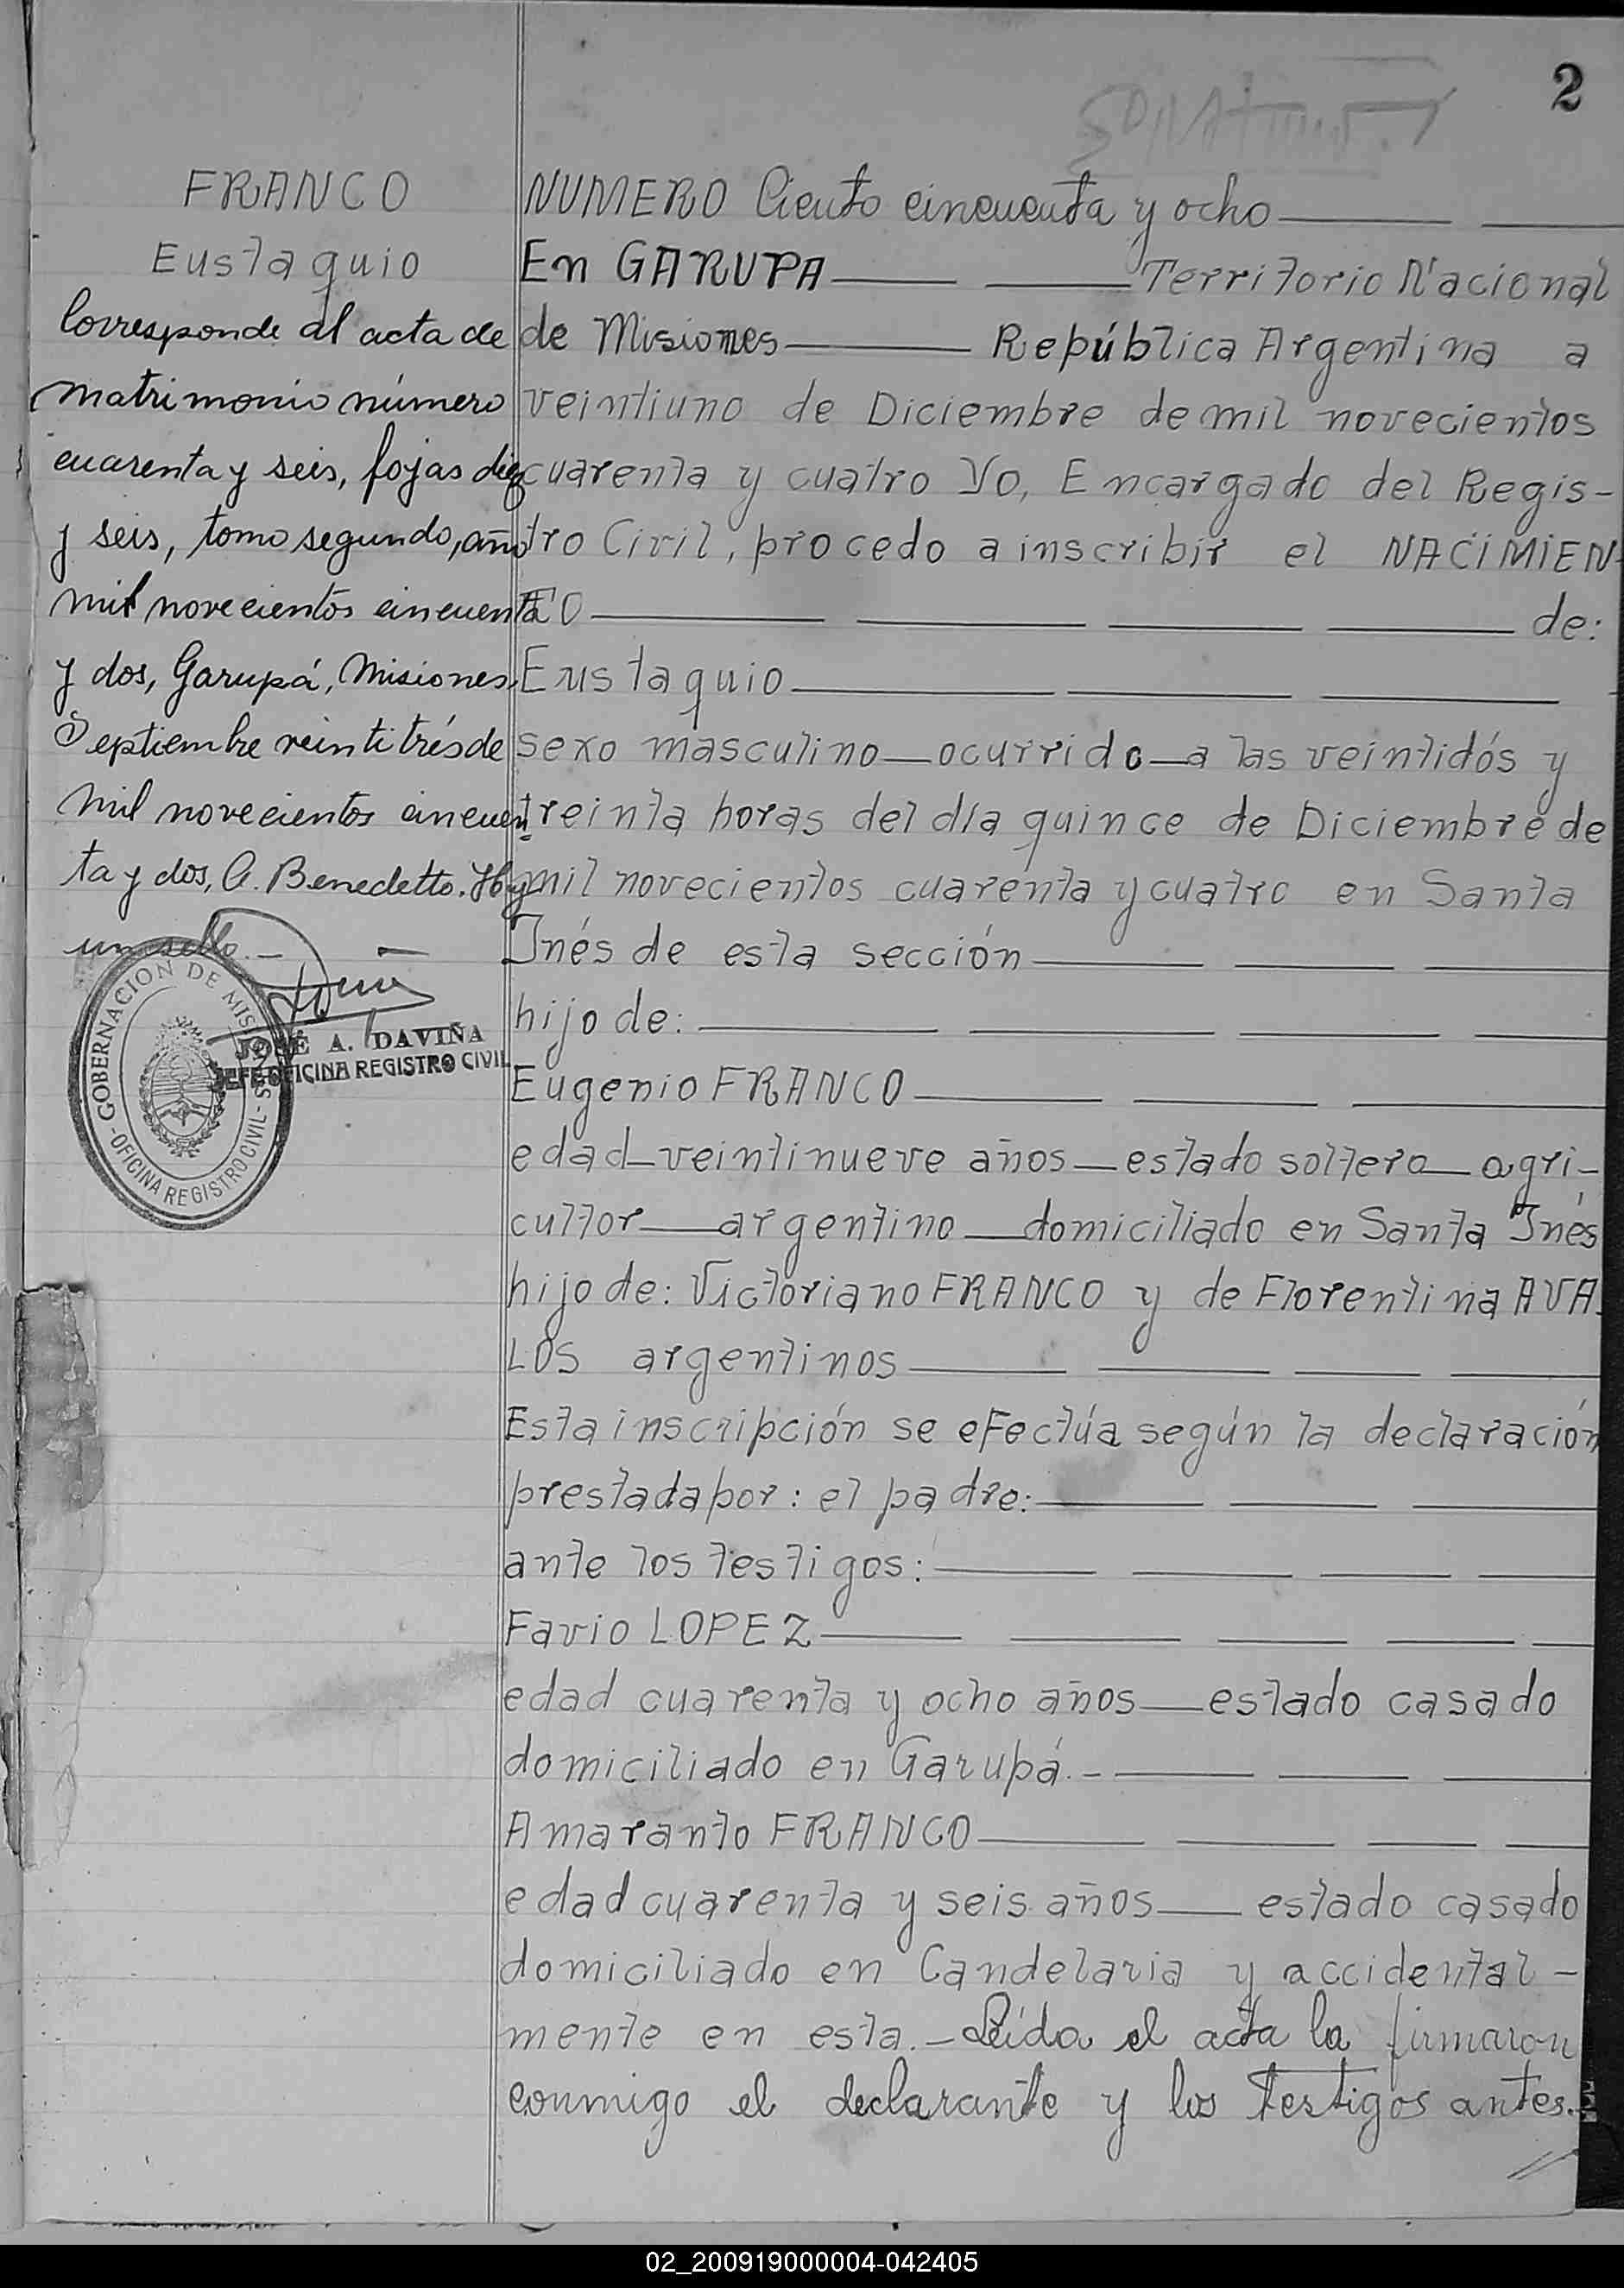 2
FRANCO
Eustaquio
Corresponde al acta de
matrimonio número
cuarenta y seis, fojas diez
y seis, tomo segundo, año
mil novecientos cincuenta
y dos, Garupá, Misiones,
Septiembre veintitrés de
mil novecientos cincuen
ta y dos, A. Benedetto. Hay
un sello.-
JOSÉ A. DAVIÑA
JEFE OFICINA REGISTRO CIVIL
GOBERNACION DE MISIONES
-OFICINA REGISTRO CIVIL-
NUMERO Ciento cincuenta y ocho
En GARUPA Territorio Nacional
de Misiones República Argentina a
veintiuno de Diciembre de mil novecientos
cuarenta y cuatro Yo, Encargado del Regis-
tro Civil, procedo a inscribir el NACIMIEN
TO de:
Eustaquio
sexo masculino ocurrido a las veintidós y
treinta horas del día quince de Diciembre de
mil novecientos cuarenta y cuatro en Santa
Inés de esta sección
hijo de:
Eugenio FRANCO
edad veintinueve años estado soltero agri-
cultor argentino domiciliado en Santa Inés
hijo de: Victoriano FRANCO y de Florentina AVA-
LOS argentinos
Esta inscripción se efectúa según la declaración
prestada por: el padre:
ante los testigos:
Favio LOPEZ
edad cuarenta y ocho años estado casado
domiciliado en Garupá.-
Amaranto FRANCO
edad cuarenta y seis años estado casado
domiciliado en Candelaria y accidental-
mente en esta.- Leída el acta la firmaron
conmigo el declarante y los testigos antes.-
02_200919000004-042405